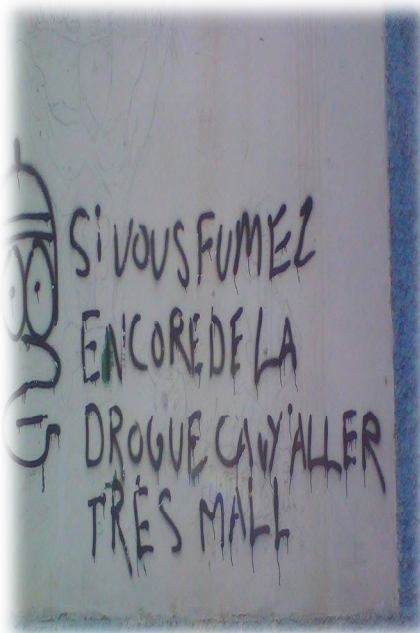 Si VOUS FUMEZ
ENCORE DE LA
DROGUE ÇA VY'ALLER
TRÈS MALL